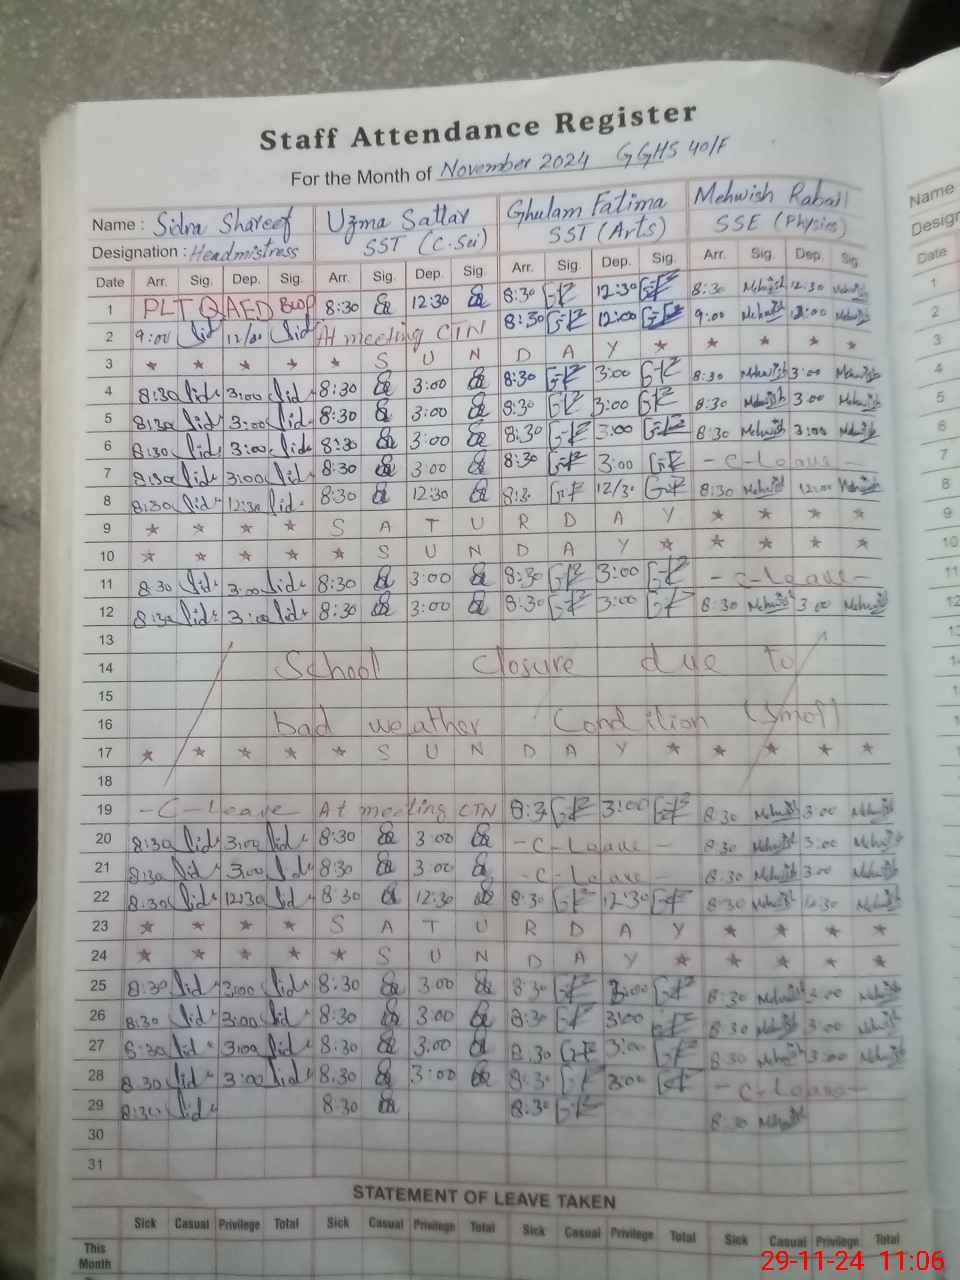 Staff Attendance Register
For the Month of November 2024 GGHS 40/F
Name : Sidra Shareef Uzma Sattar Ghulam Fatima Mehwish
Designation : Headmistress SST (C.Sci) SST (Arts) SSE (Physics)
Date Arr. Sig. Dep. Sig. Arr. Sig. Dep. Sig. Arr. Sig. Dep. Sig. Arr. Sig. Dep. Sig.
1 PLT QAED 8:30 12:30 8:30 GF 12:30 GF 8:30 Mehwish 12:30 Mehwish
2 9:00 Sid 12/00 Sid At meeting CTN 8:30 GF 12:00 GF 9:00 Mehwish 12:00 Mehwish
3 * * * * * S U N D A Y * * * * *
4 8:30 Sid 3:00 Sid 8:30 3:00 8:30 GF 3:00 GF 8:30 Mehwish 3:00 Mehwish
5 8:30 Sid 3:00 Sid 8:30 3:00 8:30 GF 3:00 GF 8:30 Mehwish 3:00 Mehwish
6 8:30 Sid 3:00 Sid 8:30 3:00 8:30 GF 3:00 GF 8:30 Mehwish 3:00 Mehwish
7 8:30 Sid 3:00 Sid 8:30 3:00 8:30 GF 3:00 GF - C-Leave -
8 8:30 Sid 12:30 Sid 8:30 12:30 8:3. GF 12/30 GF 8:30 Mehwish 12:00 Mehwish
9 * * * * S A T U R D A Y * * * *
10 * * * * * S U N D A Y * * * * *
11 8:30 Sid 3:00 Sid 8:30 3:00 8:30 GF 3:00 GF - C-Leave -
12 8:30 Sid 3:00 Sid 8:30 3:00 8:30 GF 3:00 GF 8:30 Mehwish 3:00 Mehwish
13
14 School closure due to
15
16 bad weather Condition (Smog)
17 * * * * * S U N D A Y * * * * *
18
19 - C-Leave At meeting CTN 8:3 GF 3:00 GF 8:30 Mehwish 3:00 Mehwish
20 8:30 Sid 3:00 Sid 8:30 3:00 - C-Leave - 8:30 Mehwish 3:00 Mehwish
21 8:30 Sid 3:00 Sid 8:30 3:00 - C-Leave - 8:30 Mehwish 3:00 Mehwish
22 8:30 Sid 12:30 Sid 8:30 12:30 8:30 GF 12:30 GF 8:30 Mehwish 12:30 Mehwish
23 * * * * S A T U R D A Y * * * *
24 * * * * * S U N D A Y * * * * *
25 8:30 Sid 3:00 Sid 8:30 3:00 8:30 GF 3:00 GF 8:30 Mehwish 3:00 Mehwish
26 8:30 Sid 3:00 Sid 8:30 3:00 8:30 GF 3:00 GF 8:30 Mehwish 3:00 Mehwish
27 8:30 Sid 3:00 Sid 8:30 3:00 8:30 GF 3:00 GF 8:30 Mehwish 3:00 Mehwish
28 8:30 Sid 3:00 Sid 8:30 3:00 8:30 GF 3:00 GF - C-Leave -
29 8:30 Sid 8:30 8:30 GF 8:30 Mehwish
30
31
STATEMENT OF LEAVE TAKEN
Sick Casual Privilege Total Sick Casual Privilege Total Sick Casual Privilege Total Sick Casual Privilege Total
This Month
Name
Design
Date
1
2
3
4
5
6
7
8
9
10
11
12
29-11-24 11:06